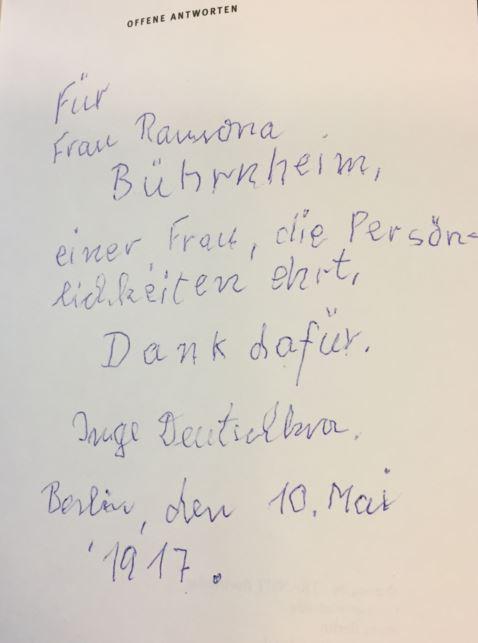 OFFENE ANTWORTEN
Für
Frau Ramona
Bührnheim,
einer Frau, die Persön-
lichkeiten ehrt,
Dank dafür.
Inge Deutschkron.
Berlin, den 10. Mai
1917.